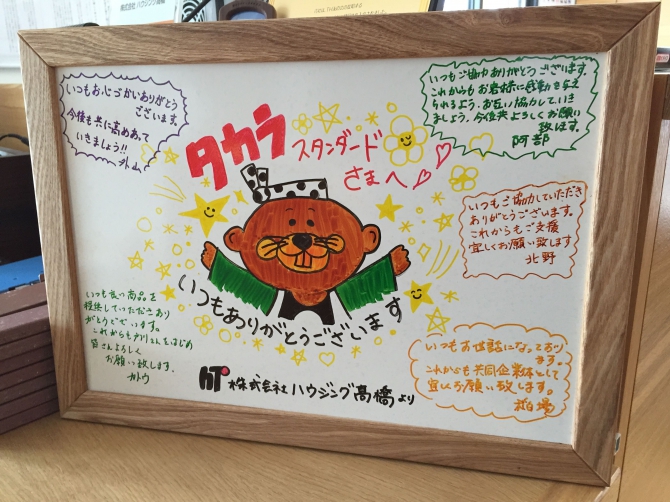 いつもお心づかいありがとう
ございます。
今後も共に高めあって
いきましょう!!
外山
いつもご協力ありがとうございます。
これからもお客様に感動を与え
られるよう、お互い協力していき
ましょう。今後共よろしくお願い
致します。
阿部
タカラ
スタンダード
さまへ
いつもご協力していただき
ありがとうございます。
これからもご支援
宜しくお願い致します
北野
いつもありがとうございます
いつも良い商品を
提供していただきあり
がとうございます。
これからも
をはじめ
皆さんよろしく
お願い致します。
カトウ
いつもお世話になっており
ます。
これからも共同企業体として
宜しくお願い致します。
hT 株式会社ハウジング高橋より
株式会社ハウジング高橋